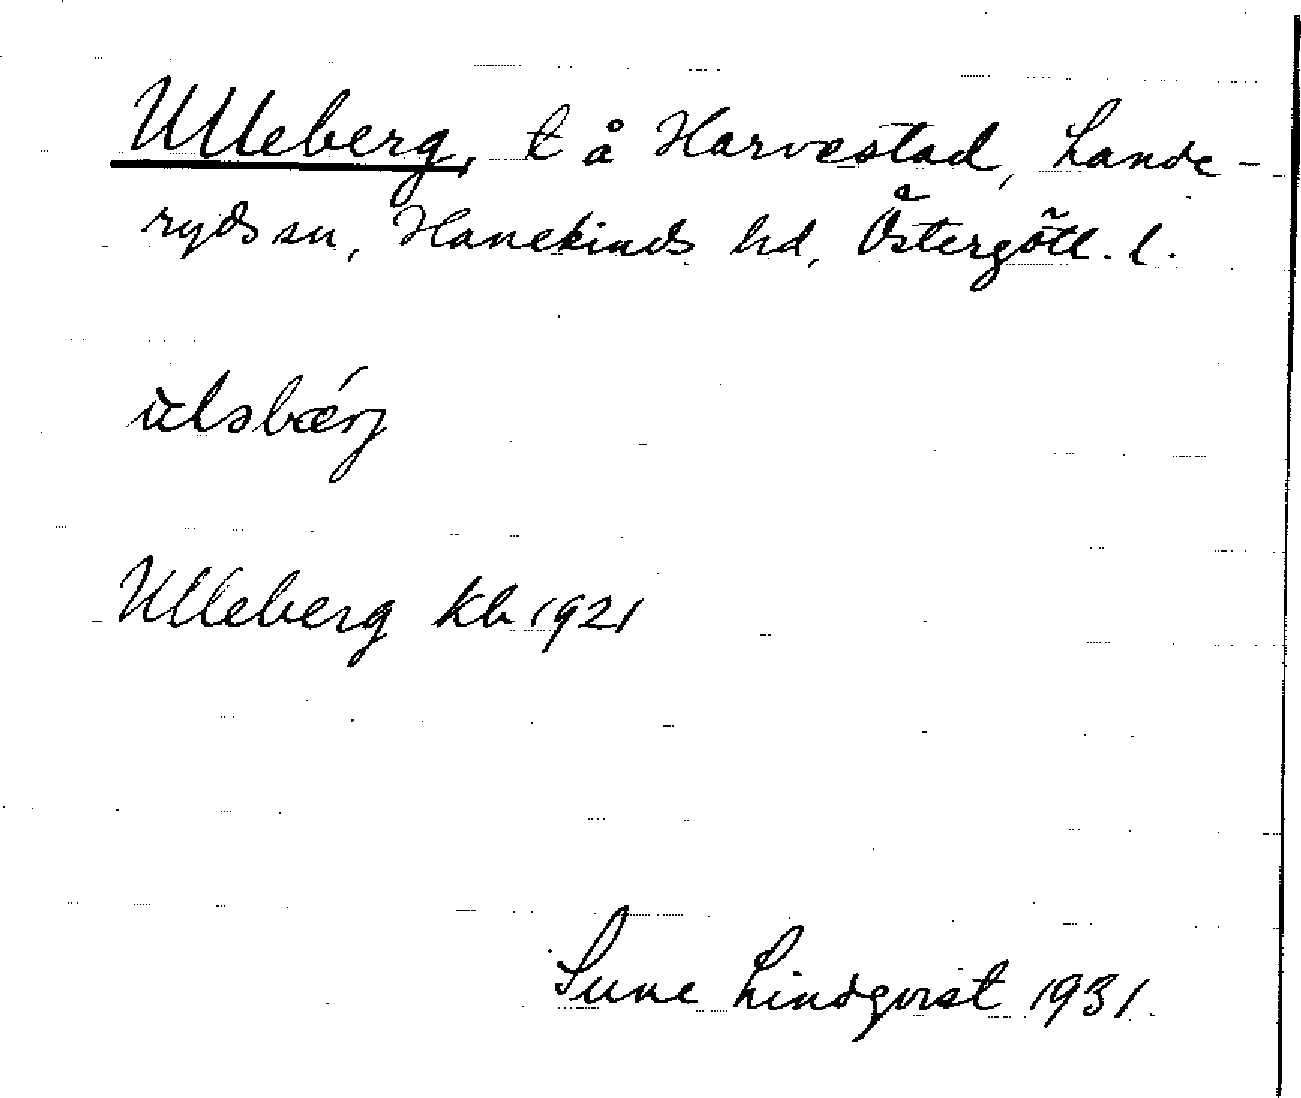 Ulleberg, t å Harvestad, Lande-
ryds sn, Hanekinds hd, Östergötl. l.
ùlsbærj
Ulleberg kb 1921
Sune Lindqvist 1931.